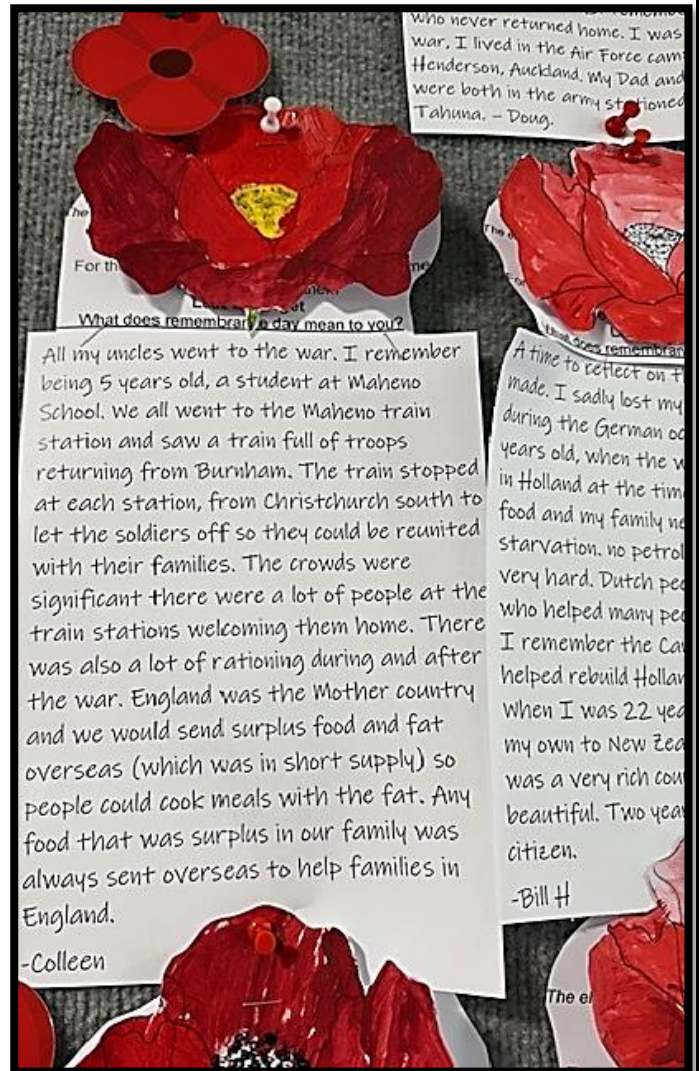 who never returned home. I was
war, I lived in the Air Force cam
Henderson, Auckland. My Dad and
were both in the army stationed
Tahuna. – Doug.
The
For th
me
get
What does remembrance day mean to you?
All my uncles went to the war. I remember
being 5 years old, a student at Maheno
School. We all went to the Maheno train
station and saw a train full of troops
returning from Burnham. The train stopped
at each station, from Christchurch south to
let the soldiers off so they could be reunited
with their families. The crowds were
significant there were a lot of people at the
train stations welcoming them home. There
was also a lot of rationing during and after
the war. England was the Mother country
and we would send surplus food and fat
overseas (which was in short supply) so
people could cook meals with the fat. Any
food that was surplus in our family was
always sent overseas to help families in
England.
-Colleen
The e
does remembran
A time to reflect on t
made. I sadly lost my
during the German oc
years old, when the w
in Holland at the tim
food and my family ne
starvation. no petrol
very hard. Dutch peo
who helped many peo
I remember the Ca
helped rebuild Hollan
When I was 22 yea
my own to New Zea
was a very rich cou
beautiful. Two year
citizen.
-Bill H
The el